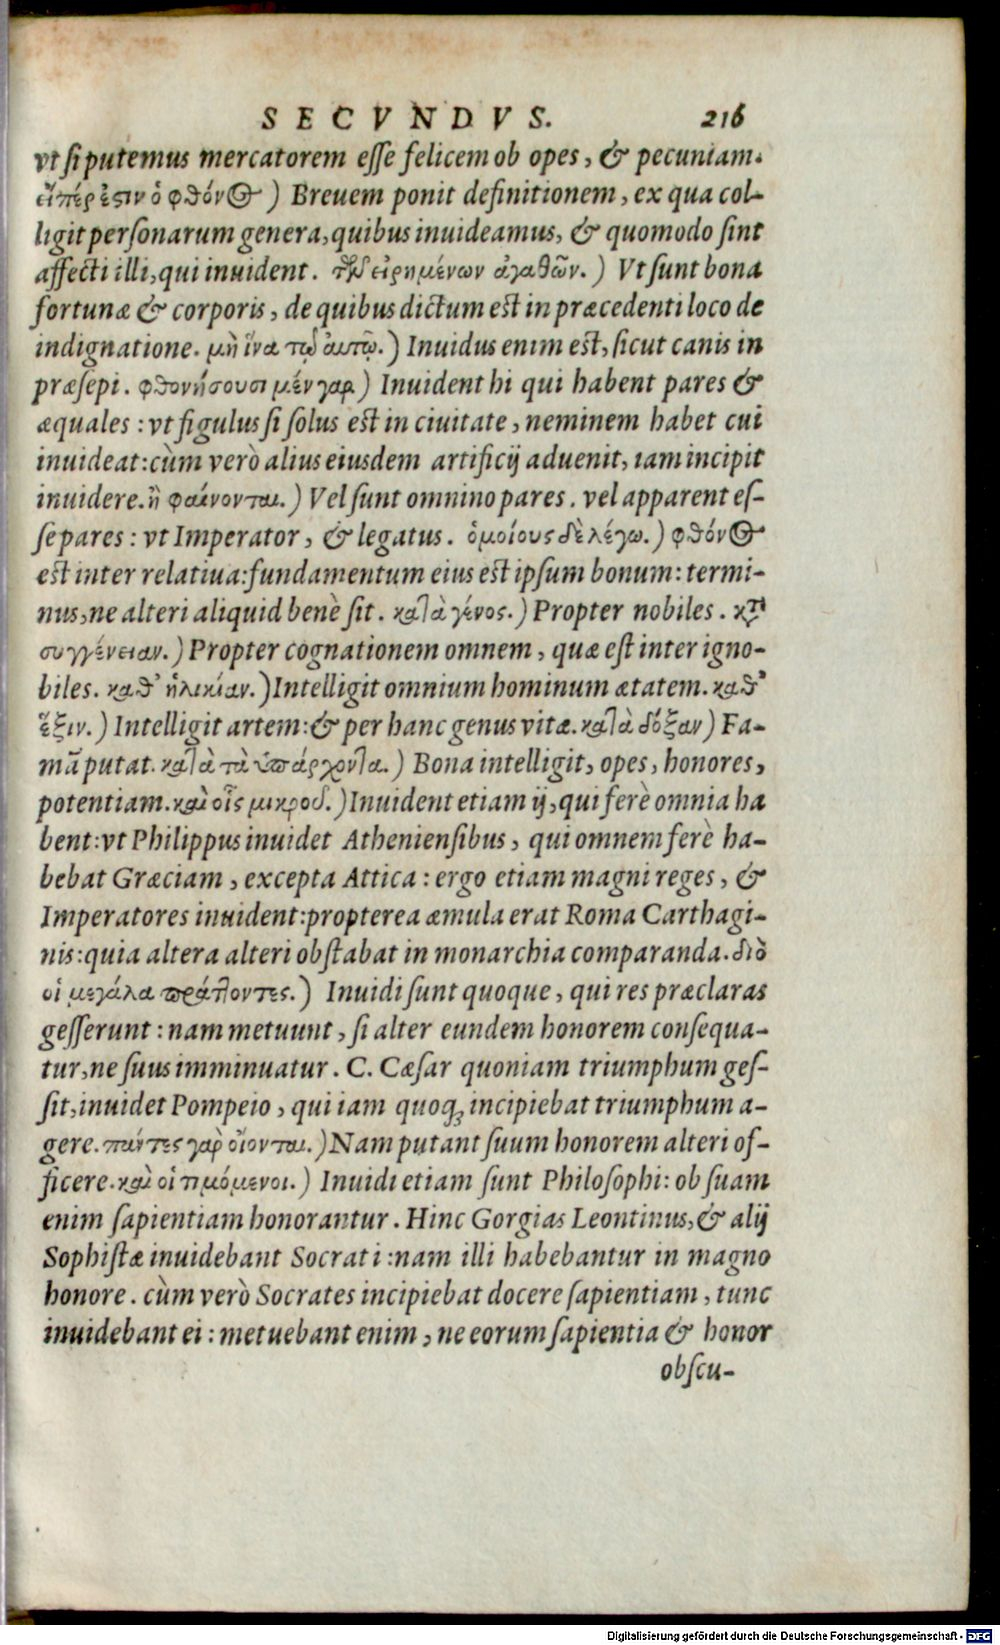 SECVNDVS. 216
vt si putemus mercatorem esse felicem ob opes, & pecuniam.
εἴπέρ ἐστιν ὁ φθόνος) Breuem ponit definitionem, ex qua col-
ligit personarum genera, quibus inuideamus, & quomodo sint
affecti illi, qui inuident. τῶν εἰρημένων ἀγαθῶν.) Vt sunt bona
fortunæ & corporis, de quibus dictum est in præcedenti loco de
indignatione. μὴ ἵνα τῳ αυτῷ.) Inuidus enim est, sicut canis in
præsepi. φθονήσουσι μέν γαρ) Inuident hi qui habent pares &
æquales: vt figulus si solus est in ciuitate, neminem habet cui
inuideat: cùm verò alius eiusdem artificij aduenit, iam incipit
inuidere. ἢ φαίνονται.) Vel sunt omnino pares. vel apparent es-
se pares: vt Imperator, & legatus. ὁμοίους δὲ λέγω.) φθόνος
est inter relatiua: fundamentum eius est ipsum bonum: termi-
nus, ne alteri aliquid benè sit. κατὰ γένος.) Propter nobiles. κατὰ
συγγένειαν.) Propter cognationem omnem, quæ est inter igno-
biles. καθ' ἡλικίαν.) Intelligit omnium hominum ætatem. καθ'
ἕξιν.) Intelligit artem: & per hanc genus vitæ. κατὰ δόξαν) Fa-
mã putat. κατὰ τὰ ὑπάρχοντα.) Bona intelligit, opes, honores,
potentiam. καὶ οἷς μικροῦ.) Inuident etiam ij, qui ferè omnia ha
bent: vt Philippus inuidet Atheniensibus, qui omnem ferè ha-
bebat Græciam, excepta Attica: ergo etiam magni reges, &
Imperatores inuident: propterea æmula erat Roma Carthagi-
nis: quia altera alteri obstabat in monarchia comparanda. διὸ
οἱ μεγάλα πράττοντες.) Inuidi sunt quoque, qui res præclaras
gesserunt: nam metuunt, si alter eundem honorem consequa-
tur, ne suus imminuatur. C. Cæsar quoniam triumphum ges-
sit, inuidet Pompeio, qui iam quoq; incipiebat triumphum a-
gere. πάντες γὰρ οἴονται.) Nam putant suum honorem alteri of-
ficere. καὶ οἱ τιμόμενοι.) Inuidi etiam sunt Philosophi: ob suam
enim sapientiam honorantur. Hinc Gorgias Leontinus, & alij
Sophistæ inuidebant Socrati: nam illi habebantur in magno
honore. cùm verò Socrates incipiebat docere sapientiam, tunc
inuidebant ei: metuebant enim, ne eorum sapientia & honor
obscu-
Digitalisierung gefördert durch die Deutsche Forschungsgemeinschaft - DFG